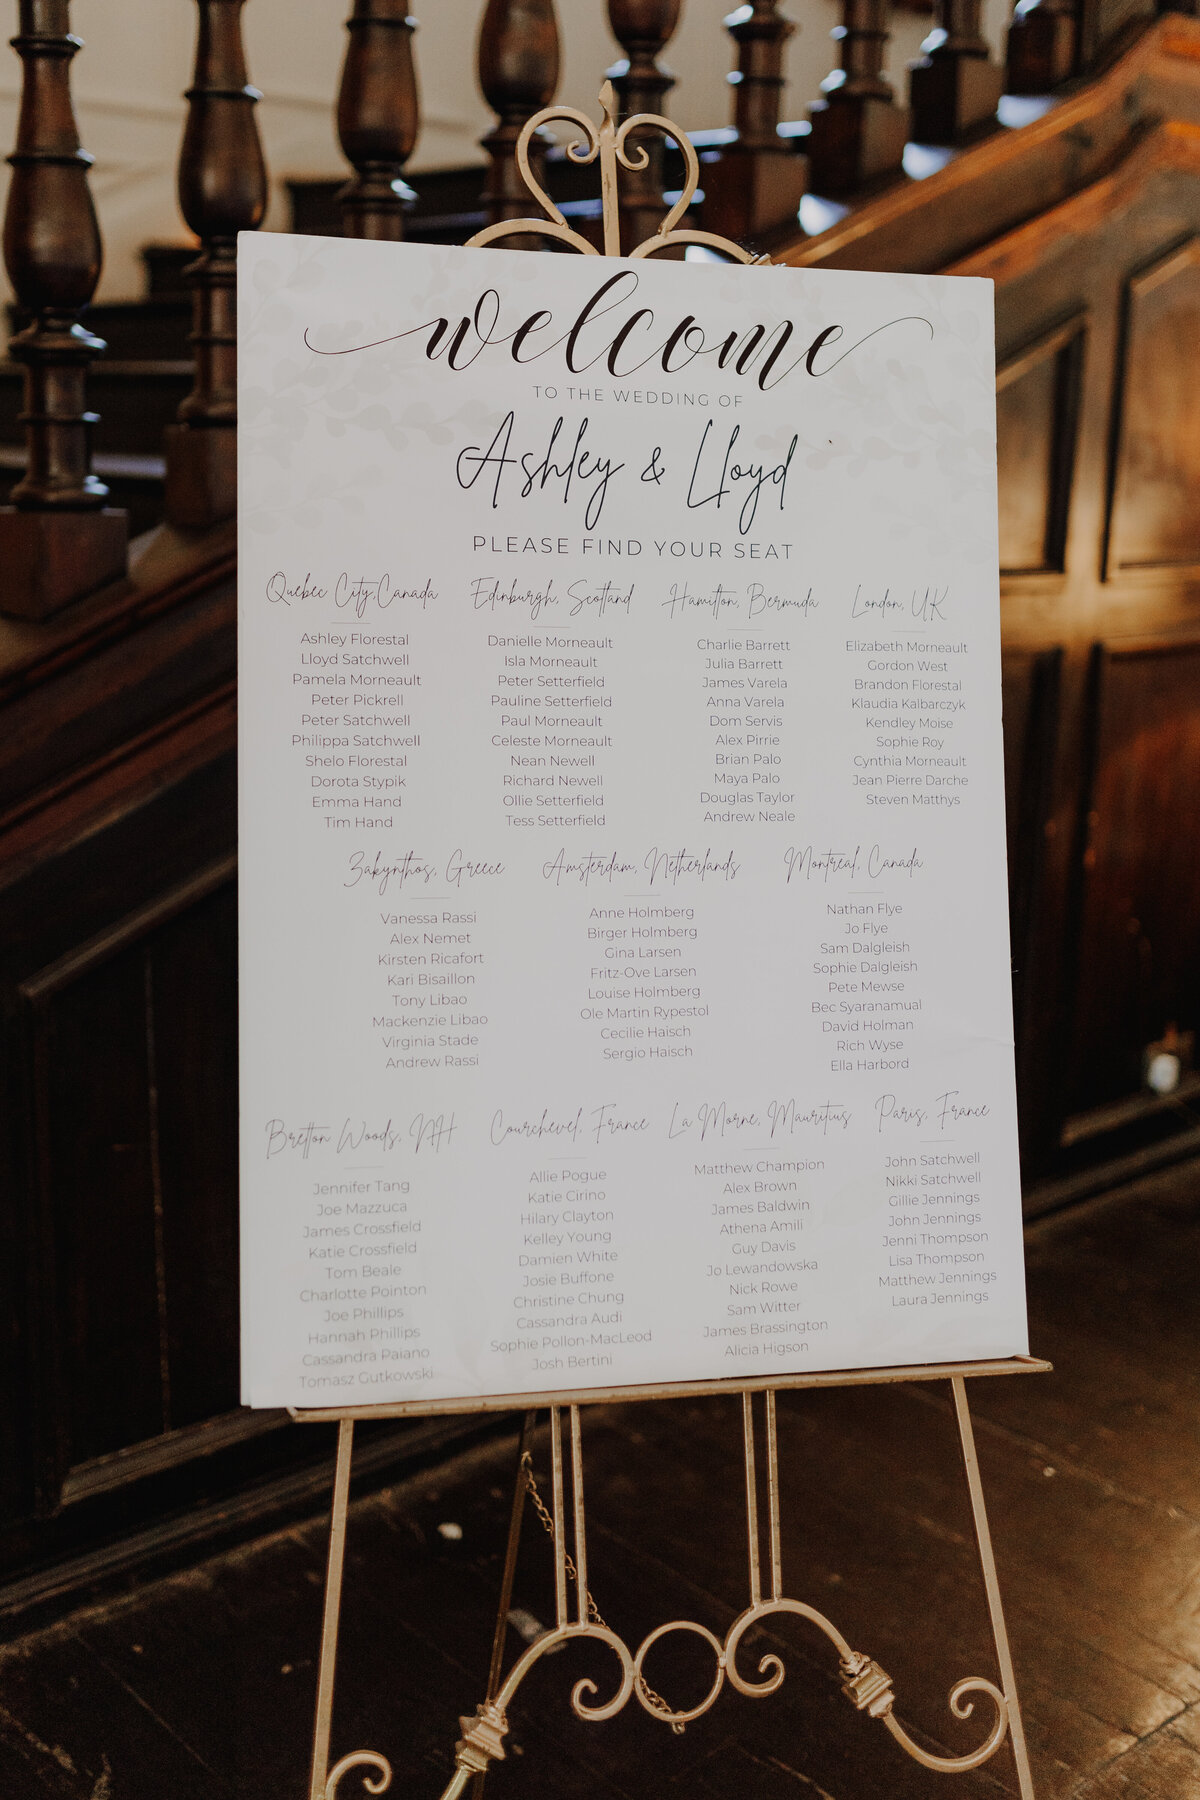 welcome
TO THE WEDDING OF
Ashley & Lloyd
PLEASE FIND YOUR SEAT
Quebec City, Canada
Ashley Florestal
Lloyd Satchwell
Pamela Morneault
Peter Pickrell
Peter Satchwell
Philippa Satchwell
Shelo Florestal
Dorota Stypik
Emma Hand
Tim Hand
Edinburgh, Scotland
Danielle Morneault
Isla Morneault
Peter Setterfield
Pauline Setterfield
Paul Morneault
Celeste Morneault
Nean Newell
Richard Newell
Ollie Setterfield
Tess Setterfield
Hamilton, Bermuda
Charlie Barrett
Julia Barrett
James Varela
Anna Varela
Dom Servis
Alex Pirrie
Brian Palo
Maya Palo
Douglas Taylor
Andrew Neale
London, UK
Elizabeth Morneault
Gordon West
Brandon Florestal
Klaudia Kalbarczyk
Kendley Moise
Sophie Roy
Cynthia Morneault
Jean Pierre Darche
Steven Matthys
Zakynthos, Greece
Vanessa Rassi
Alex Nemet
Kirsten Ricafort
Kari Bisaillon
Tony Libao
Mackenzie Libao
Virginia Stade
Andrew Rassi
Amsterdam, Netherlands
Anne Holmberg
Birger Holmberg
Gina Larsen
Fritz-Ove Larsen
Louise Holmberg
Ole Martin Rypestol
Cecilie Haisch
Sergio Haisch
Montreal, Canada
Nathan Flye
Jo Flye
Sam Dalgleish
Sophie Dalgleish
Pete Mewse
Bec Syaranamual
David Holman
Rich Wyse
Ella Harbord
Bretton Woods, NH
Jennifer Tang
Joe Mazzuca
James Crossfield
Katie Crossfield
Tom Beale
Charlotte Pointon
Joe Phillips
Hannah Phillips
Cassandra Paiano
Tomasz Gutkowski
Courchevel, France
Allie Pogue
Katie Cirino
Hilary Clayton
Kelley Young
Damien White
Josie Buffone
Christine Chung
Cassandra Audi
Sophie Pollon-MacLeod
Josh Bertini
La Morne, Mauritius
Matthew Champion
Alex Brown
James Baldwin
Athena Amili
Guy Davis
Jo Lewandowska
Nick Rowe
Sam Witter
James Brassington
Alicia Higson
Paris, France
John Satchwell
Nikki Satchwell
Gillie Jennings
John Jennings
Jenni Thompson
Lisa Thompson
Matthew Jennings
Laura Jennings